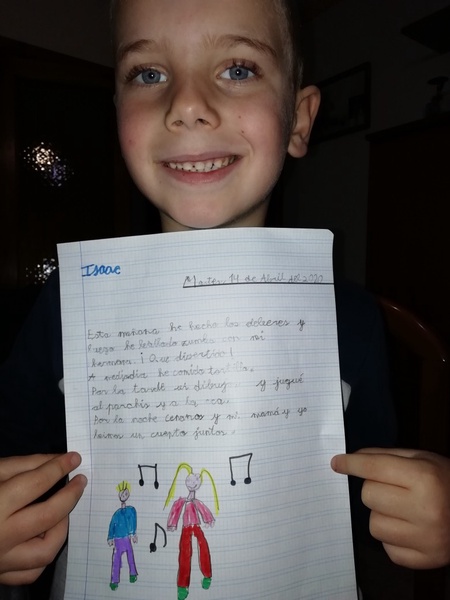 Isaac
Martes, 14 de Abril del 2020
Esta mañana he hecho los deberes y
luego he bailado con mi
hermana ¡Que divertido!
A mediodia he comido
Por la tarde y jugué
al parchís y a la oca.
Por la noche cenamos y mi mamá y yo
leimos un cuento juntos.